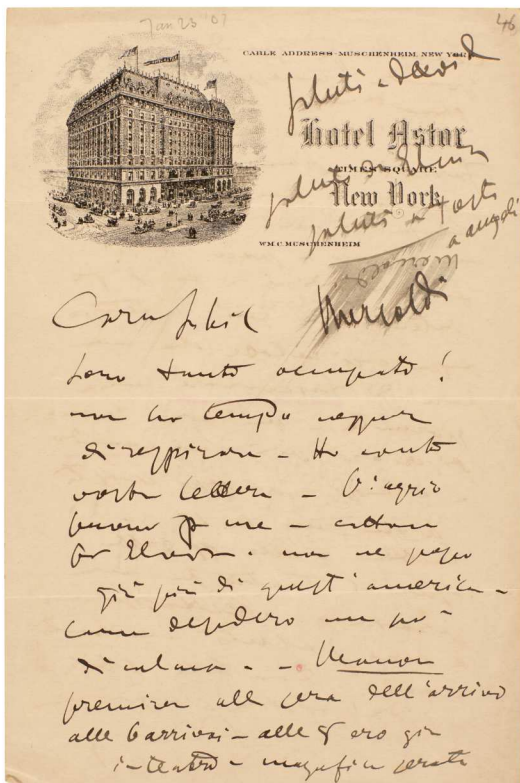 Jan 23 '07
46
CABLE ADDRESS MUSCHENHEIM, NEW YORK
saluti a David
Hotel Astor
TIMES SQUARE
New York
saluti a Tosti
a angeli
WM C. MUSCHENHEIM
Cara Sybil
Sono tanto occupato!
non ho tempo neppur
di respirare - Ho avuto
vostra lettera -
buono p me - cattivo
per Elvira. non ne posso
già più di quest'america -
come desidero un po'
di calma - - Manon
première alla sera dell'arrivo
alle 6 arrivai - alle 8 ero già
in teatro - magnifica serata